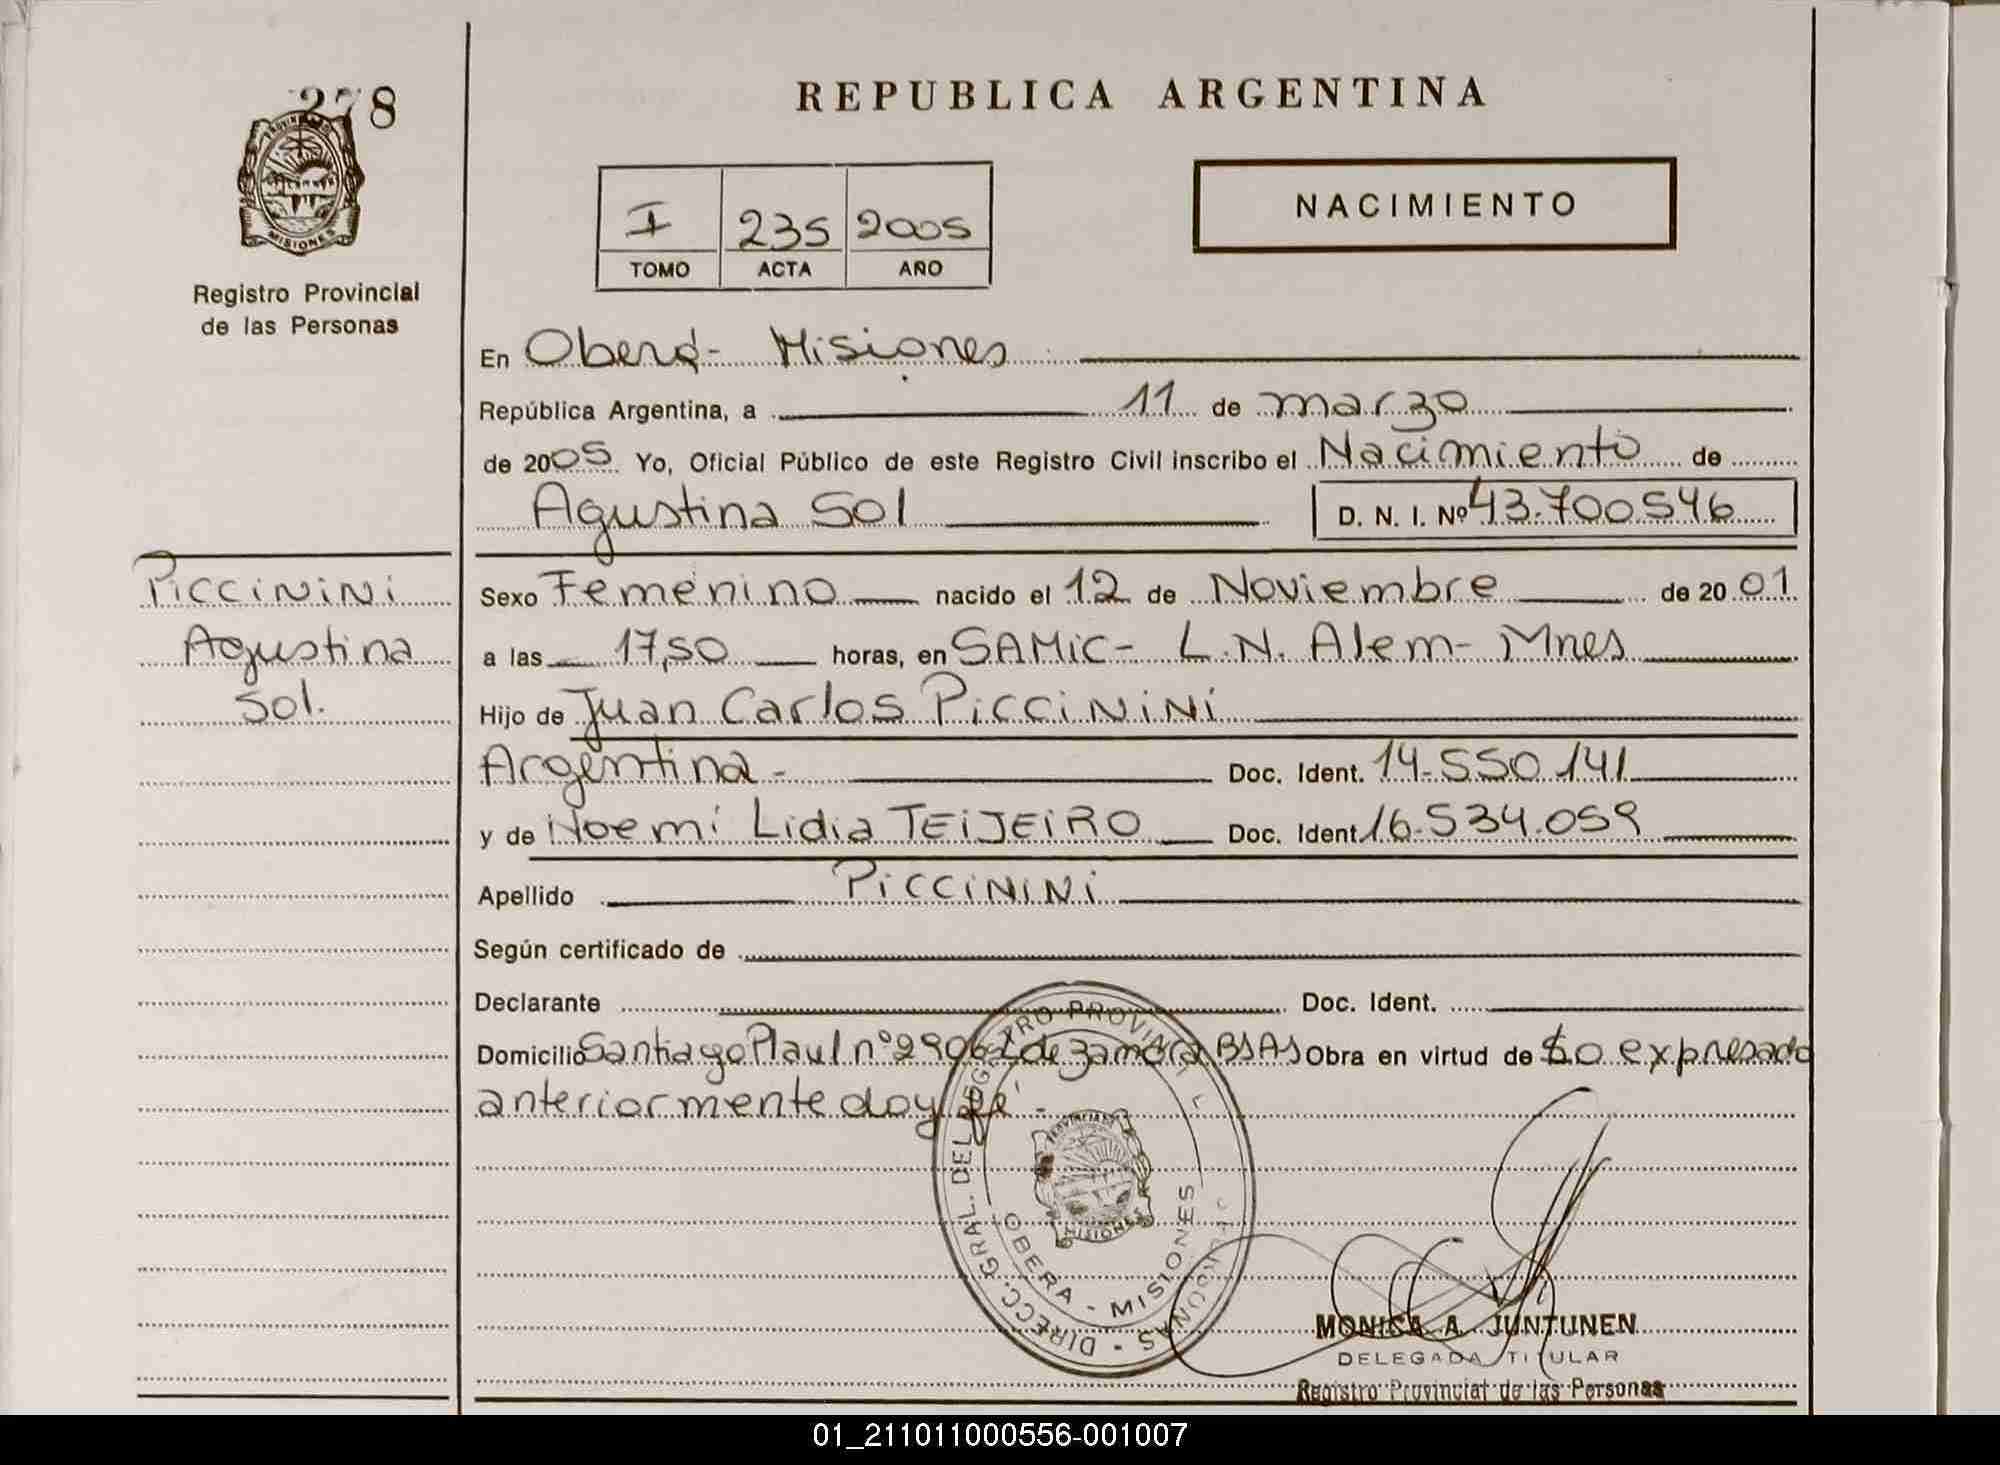 278
REPUBLICA ARGENTINA
NACIMIENTO
I 235 2005
TOMO ACTA AÑO
MISIONES
Registro Provincial
de las Personas
En Oberá- Misiones
República Argentina, a 11 de marzo
de 2005 Yo, Oficial Público de este Registro Civil inscribo el Nacimiento de
Agustina Sol D. N. I. Nº 43.700546
Piccinini
Agustina
Sol.
Sexo Femenino nacido el 12 de Noviembre de 2001
a las 17,50 horas, en SAMiC- L.N. Alem- Mnes
Hijo de Juan Carlos PicciNiNi
Argentina- Doc. Ident. 14.550.141
y de Noemi Lidia TEiJEiRO Doc. Ident. 16.534.059
Apellido PicciNiNi
Según certificado de
Declarante Doc. Ident.
Domicilio Santiago Plaul nº 2906 L de Zamora BSAS Obra en virtud de Lo expresado
anteriormente doy fé-
DIRECC. GRAL. DEL REGISTRO PROVINCIAL PERSONAS
OBERA - MISIONES
MISIONES
MONICA A. JUNTUNEN
DELEGADA TITULAR
Registro Provincial de las Personas
01_211011000556-001007